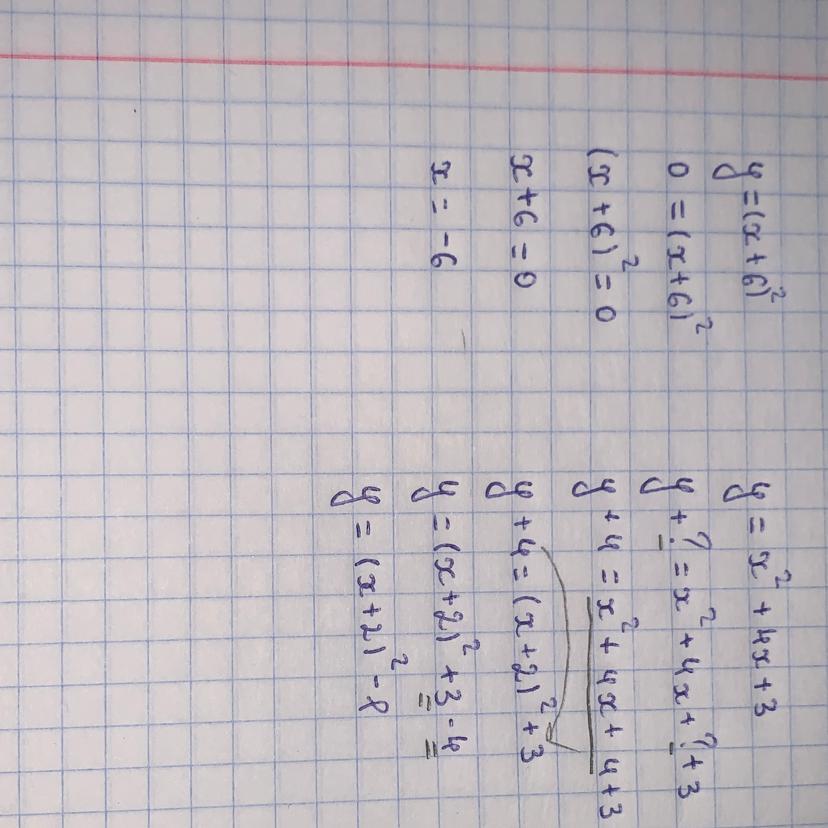 y = (x + 6)²
0 = (x + 6)²
(x + 6)² = 0
x + 6 = 0
x = -6
y = x² + 4x + 3
y + ? = x² + 4x + ? + 3
y + 4 = x² + 4x + 4 + 3
y + 4 = (x + 2)² + 3
y = (x + 2)² + 3 - 4
y = (x + 2)² - 8